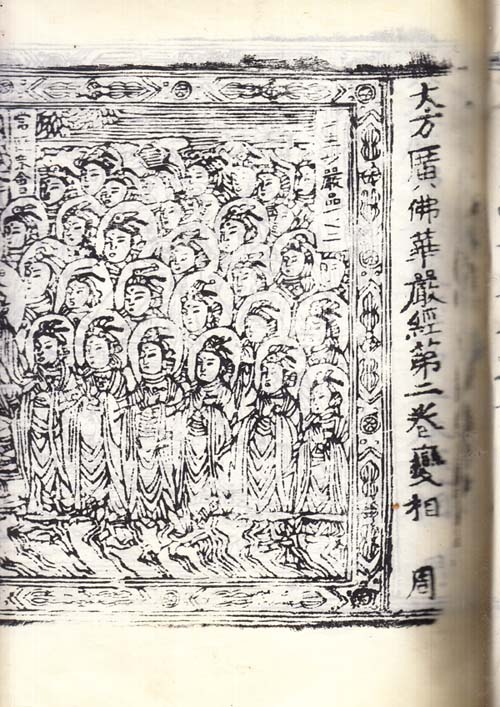 大方廣佛華嚴經第二卷變相 周
嚴品
衆會